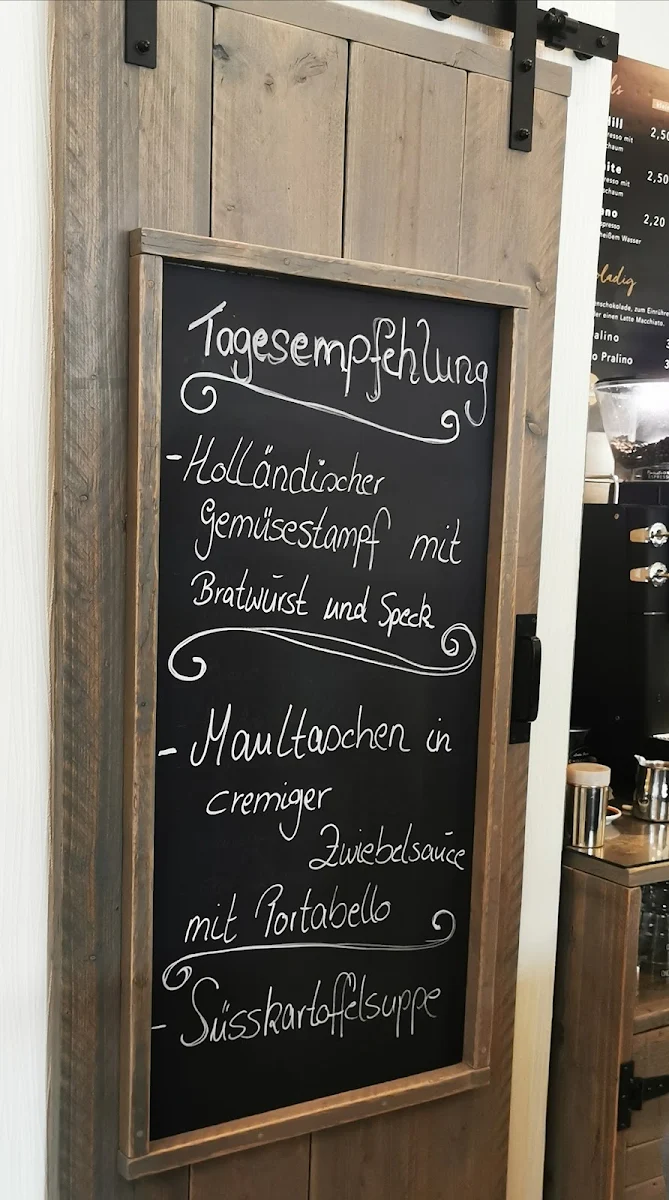 Tagesempfehlung
- Holländischer
Gemüsestampf mit
Bratwurst und Speck
- Maultaschen in
cremiger
Zwiebelsauce
mit Portabello
- Süsskartoffelsuppe
2,50
resso mit
chaum
2,50
resso mit
chaum
2,20
presso
heißem Wasser
nschokolade, zum Einrühre
der einen Latte Macchiato.
alino
o Pralino